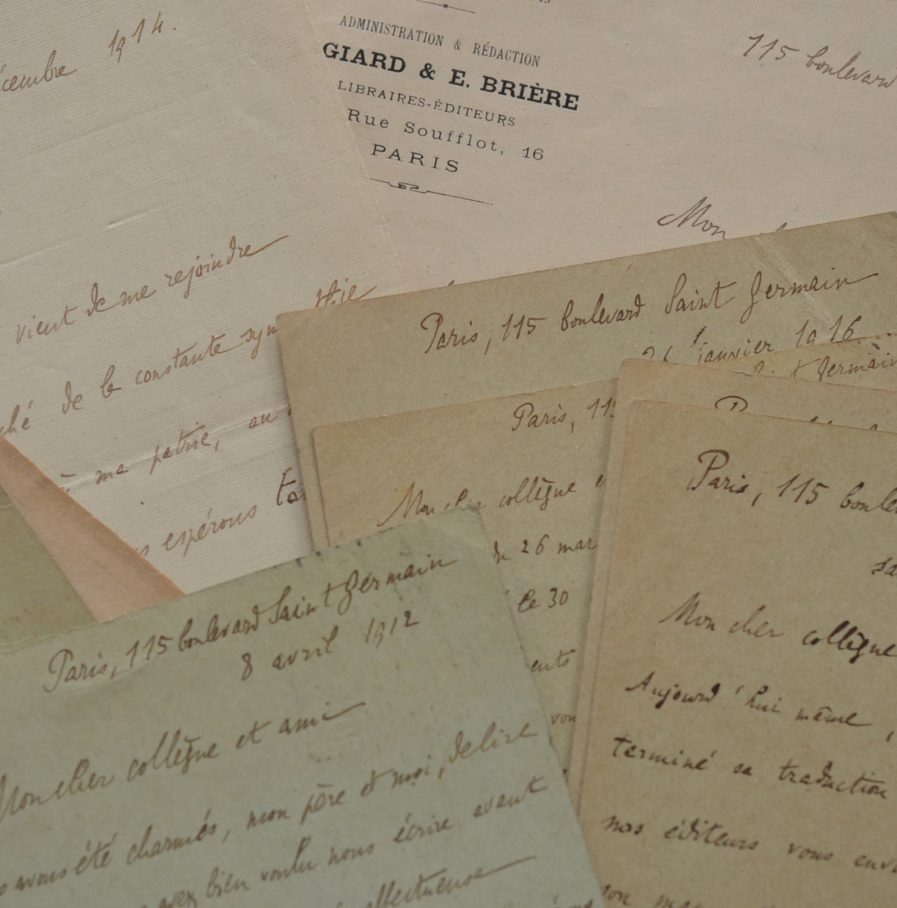 décembre 1914.
vient de me rejoindre
de la constante sympathie
à ma patrie, au
espérons
ADMINISTRATION & RÉDACTION
GIARD & E. BRIÈRE
LIBRAIRES-ÉDITEURS
Rue Soufflot, 16
PARIS
115 boulevard
Mon
Paris, 115 boulevard Saint Germain
26 janvier 1916
Germain
Paris, 115
Mon cher collègue
26 mar
le 30
vou
Paris, 115 boule
sa
Mon cher collègue
Aujourd'hui même,
terminé sa traduction
nos éditeurs vous env
Paris, 115 boulevard Saint Germain
8 avril 1912
Mon cher collègue et ami
avons été charmés, mon père et moi, de lire
avez bien voulu nous écrire avant
affectueuse